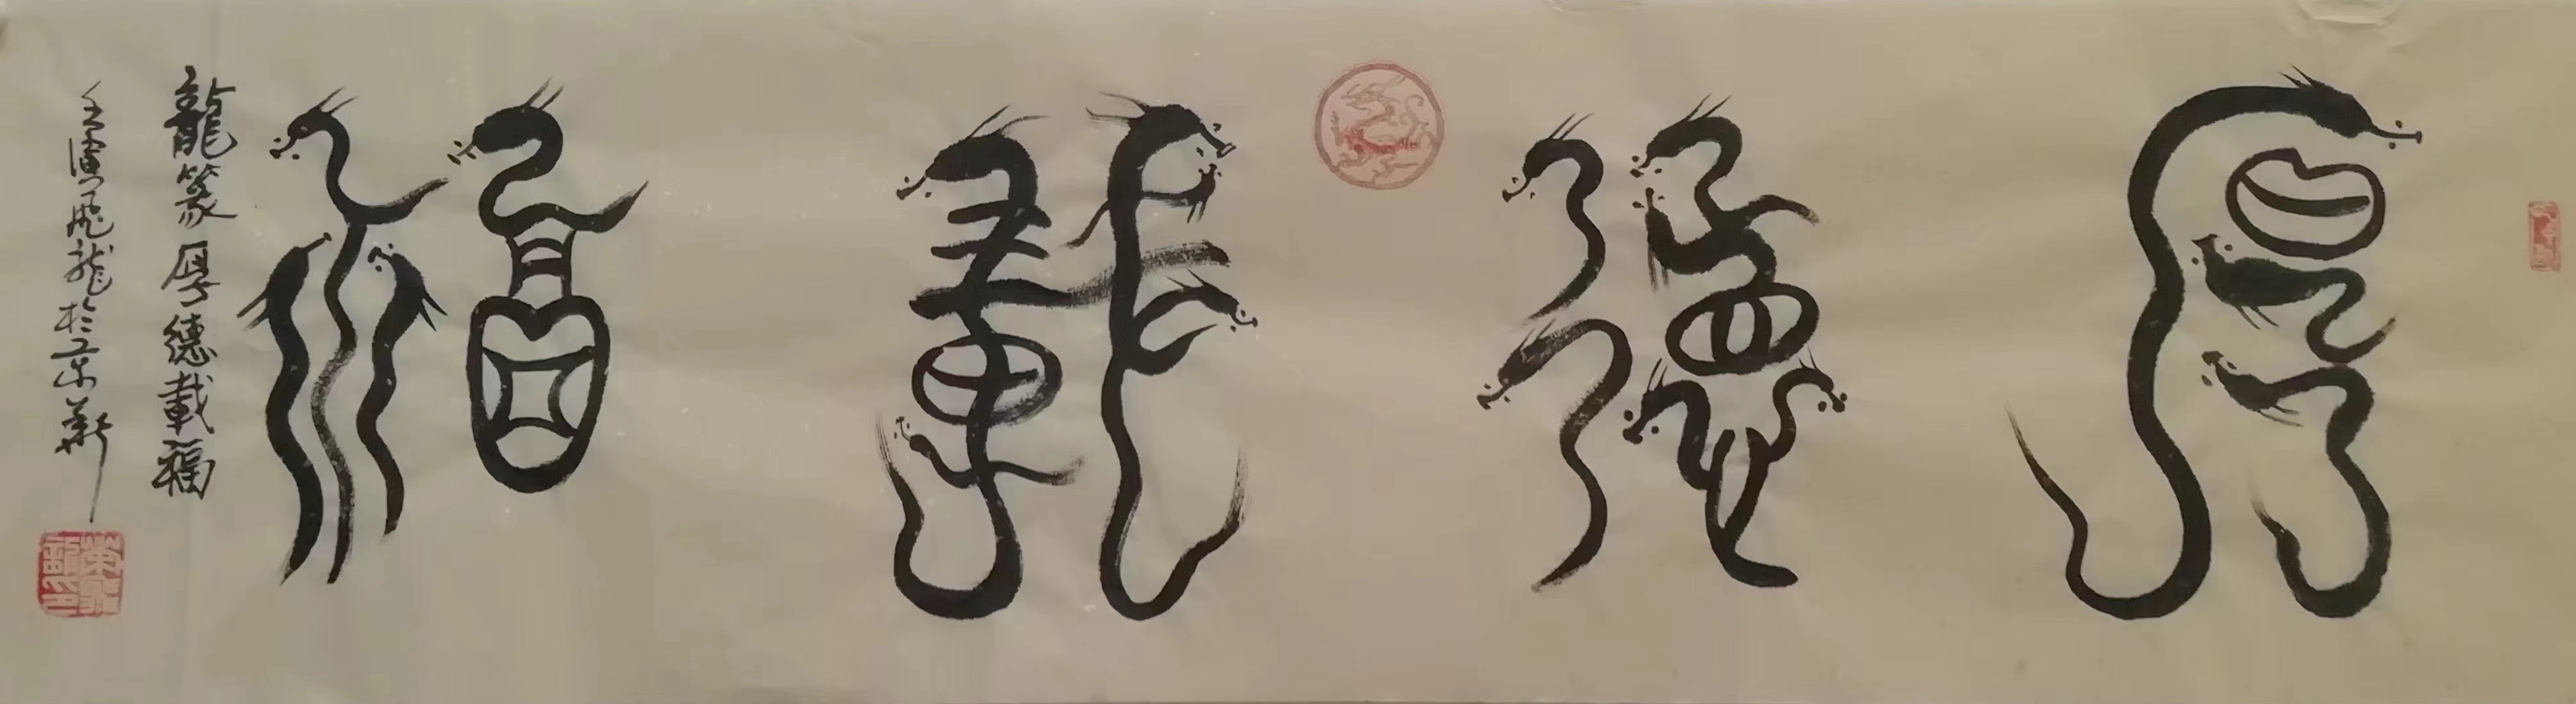 厚德載福
龍篆厚德載福
壬寅飛龍於京華